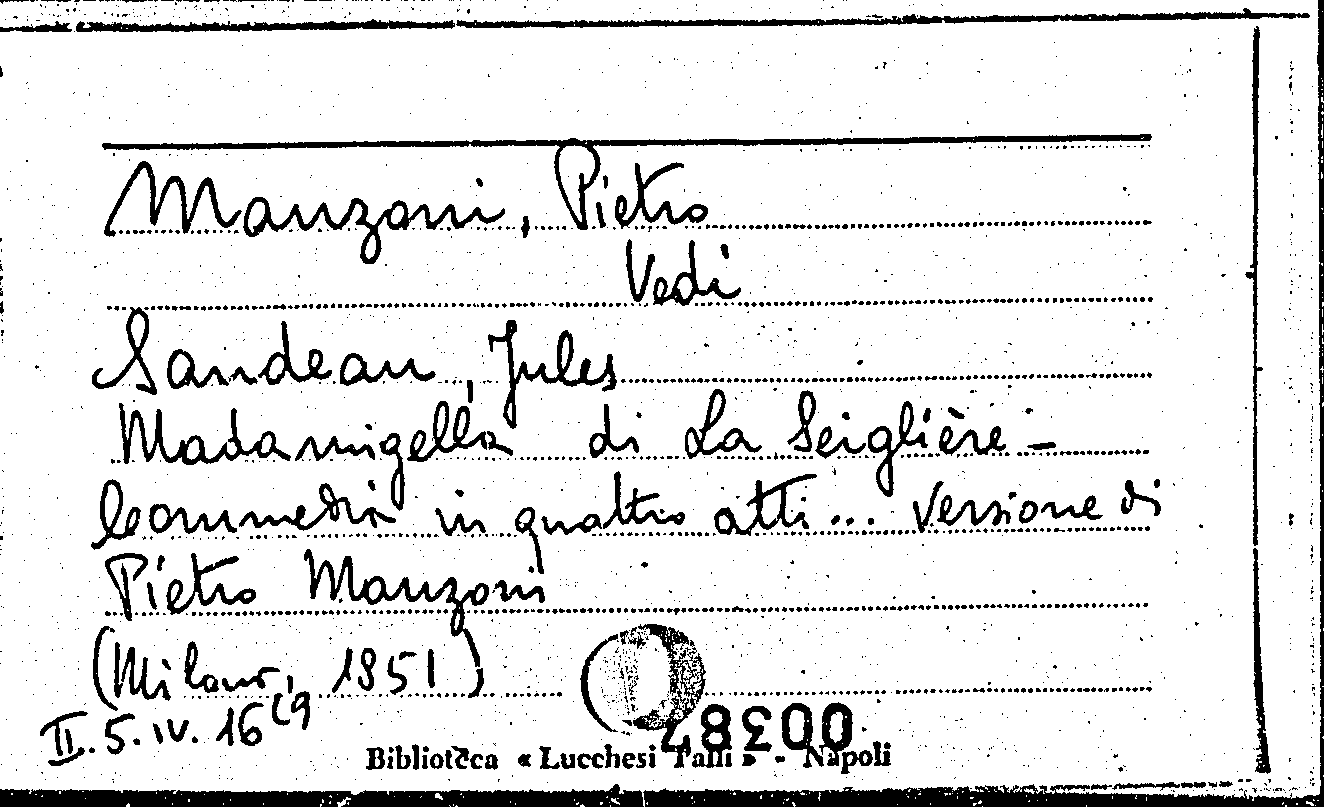 Manzoni, Pietro
Vedi
Sandeau, Jules
Madamigella di La Seiglière -
Commedia in quattro atti... versione di
Pietro Manzoni
(Milano, 1851)
II. 5. IV. 16 (9
00387
Biblioteca « Lucchesi Palli » - Napoli